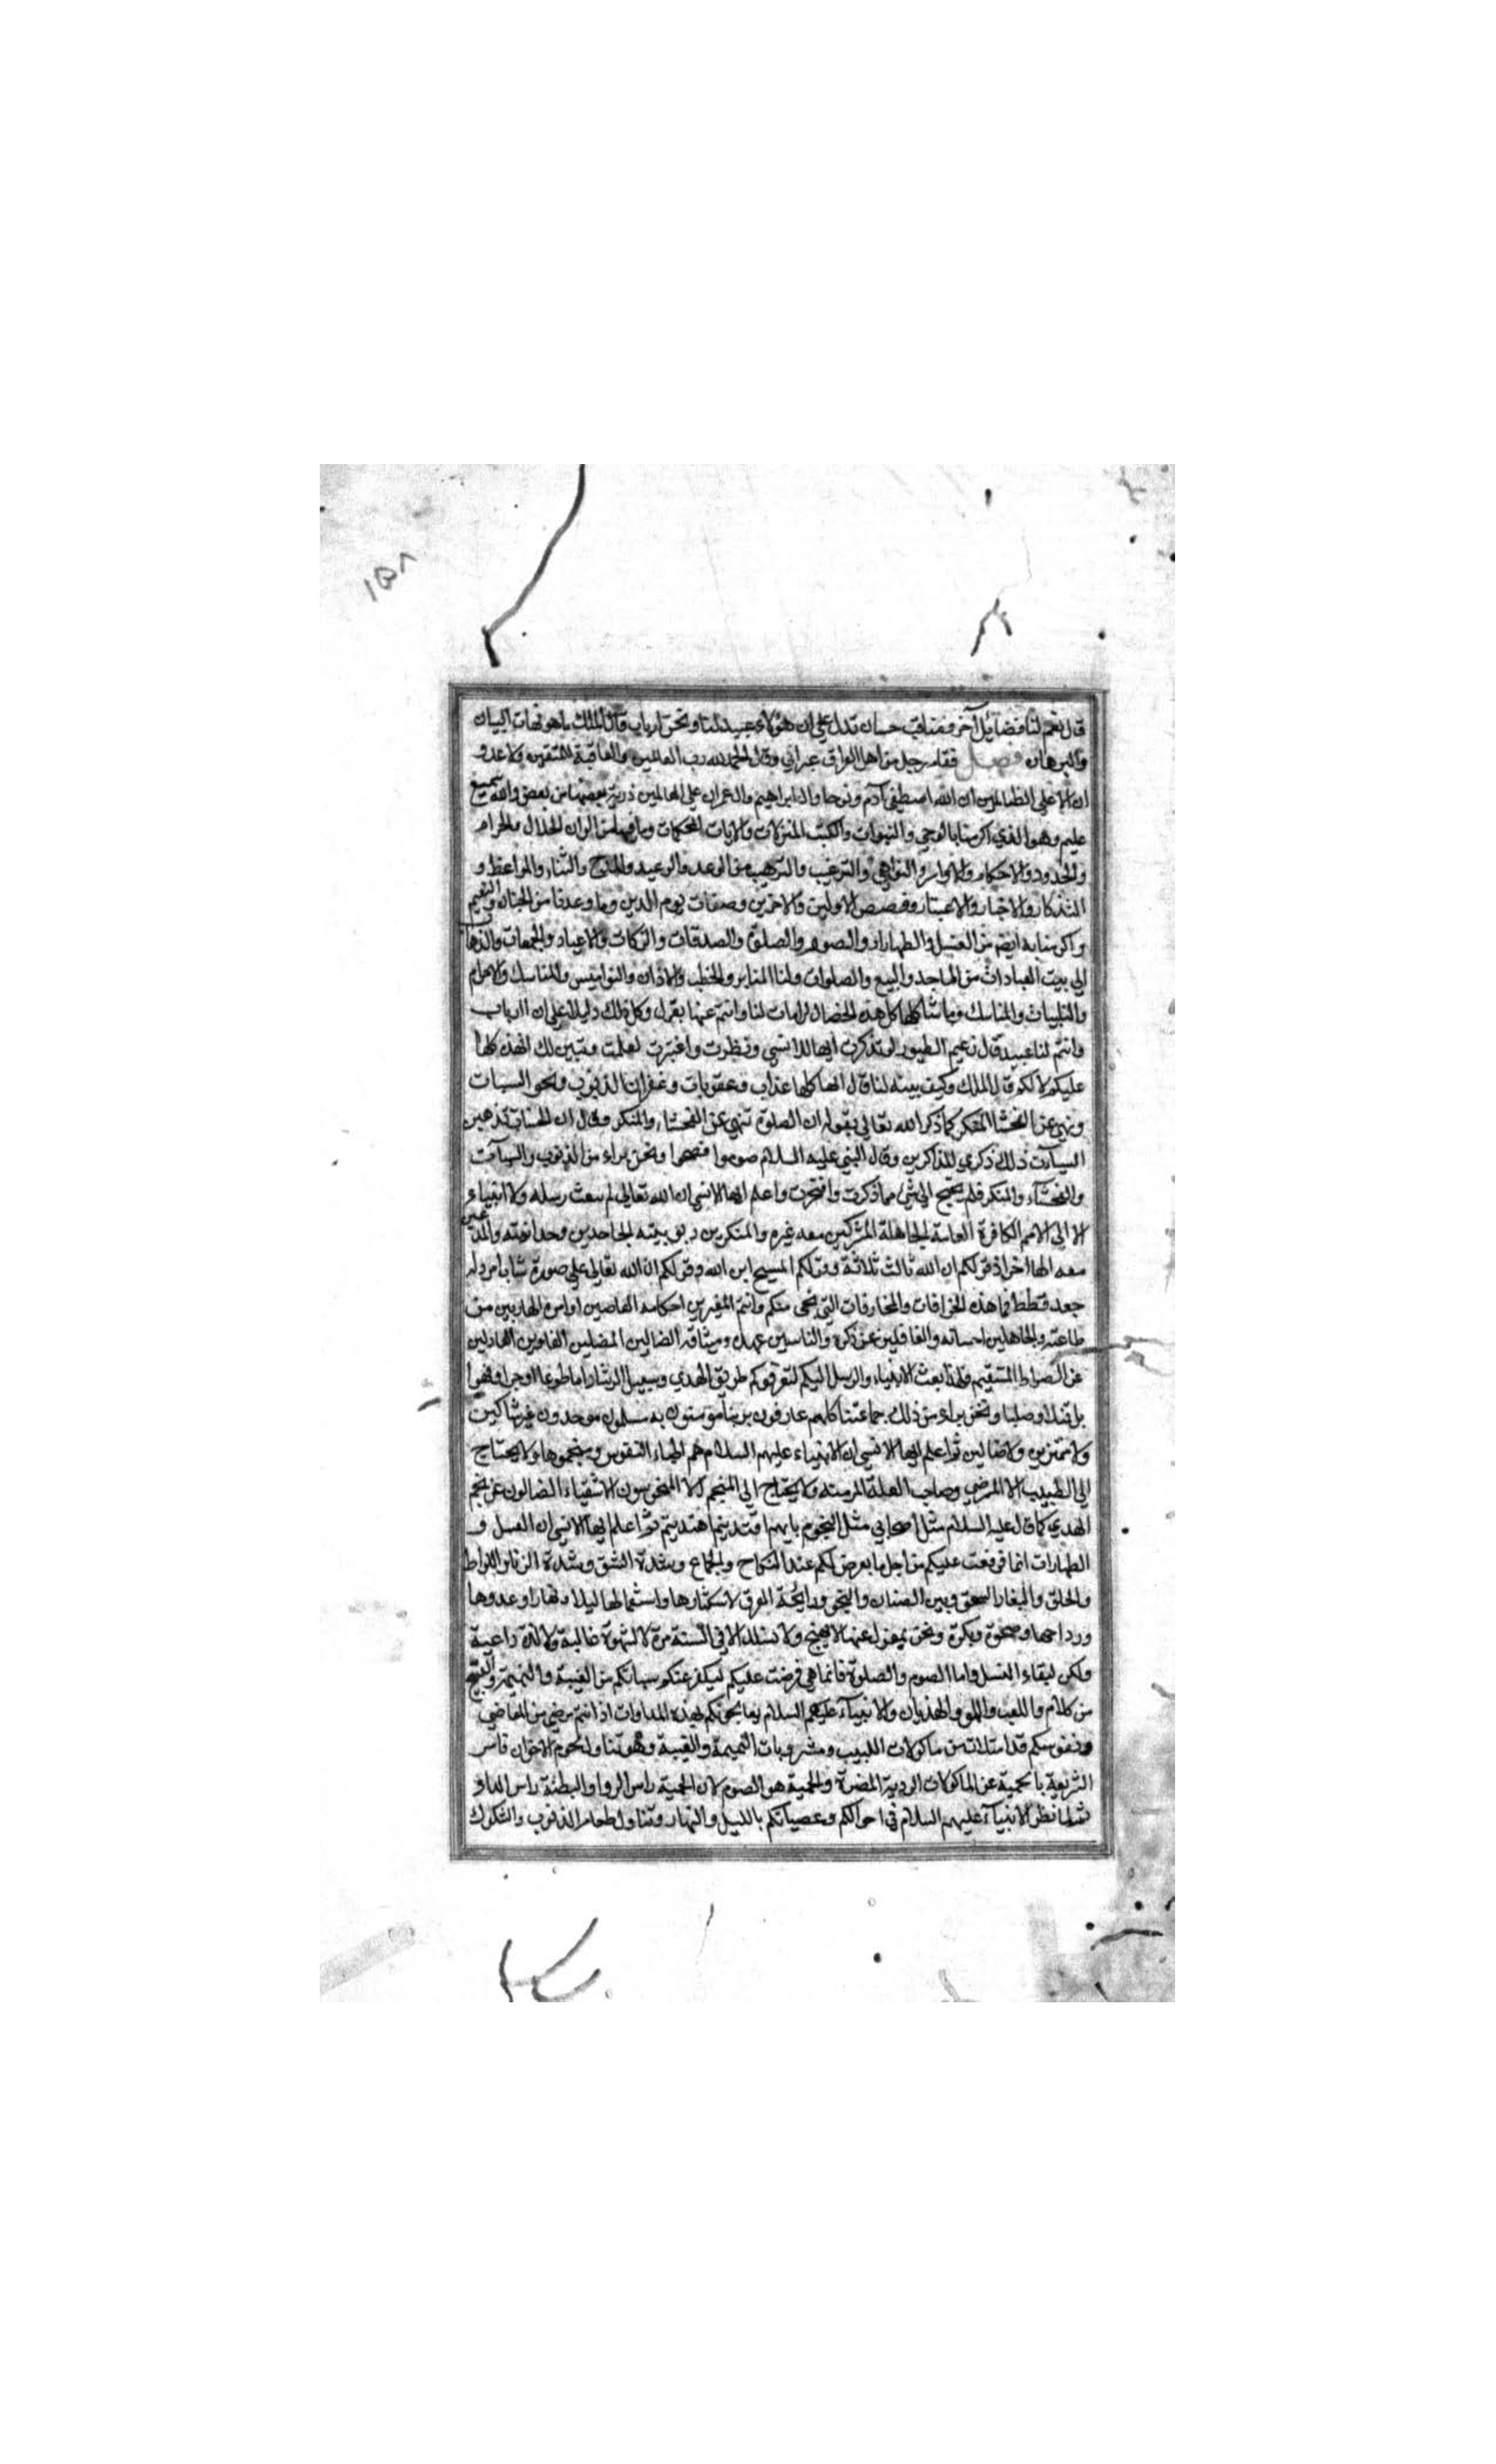 ١٥٨
قال نعم لنا فضائل آخر ومناقب حسان تدل على ان هؤلاء عبيد لنا ونحن ارباب قال الملك ما هو فهات البيان
والبرهان فصل فقام رجل من اهل العراق عبراني وقال الحمد لله رب العالمين والعاقبة للمتقين ولا عدو
ان الا على الظالمين ان الله اصطفى آدم ونوحا وال ابراهيم وال عمران على العالمين ذرية بعضها من بعض والله سميع
عليم وهو الذي اكرمنا بالوحي والنبوات والكتب المنزلات والايات المحكمات وما فيها من الوان الحلال والحرام
والحدود والاحكام والاوامر والنواهي والترغيب والترهيب من الوعد والوعيد والمدح والثناء والمواعظ و
التذكار والاخبار والاعتبار وقصص الاولين والاخرين وصفات يوم الدين وما وعدنا من الجنان والنعيم
واكرمنا به ايضم من الغسل والطهارات والصوم والصلوة والصدقات والزكات والاعياد والجمعات والذهاب
الى بيت العبادات من المساجد والبيع والصلوات ولنا المنابر والخطب والاذان والنواميس والمناسك والاحرام
والتلبيات والمناسك وما شاكلها كل هذه الخصال كرامات لنا وانتم عنها بمعزل وكل ذلك دليلا على ان ارباب
وانتم لنا عبيد قال زعيم الطيور لو تذكرت ايها الانسي ونظرت واعتبرت لعلمت وتبين لك انهذه كلها
عليكم لا لكم قال الملك وكيف بينه لنا قال انها كلها عذاب وعقوبات وغفران الذنوب ومحو السيات
ونهي عن الفحشا المنكر كما ذكر الله تعالى بقوله ان الصلوة تنهى عن الفحشاء والمنكر وقال ان الحسنات يذهبن
السيآت ذلك ذكرى للذاكرين وقال النبي عليه السلام صوموا تصحوا ونحن براء من الذنوب والسيآت
والفحشآء والمنكر فلم نحتج الى شئ مما ذكرت وافتخرت واعلم ايها الانسي ان الله تعالى لم يبعث رسله ولا انبياء
الا الى الامم الكافرة العامة الجاهلة المشركين معه غيره والمنكرين ربوبيته الجاحدين وحدانيته والمدعين
معه الها اخر اذ قولكم ان الله ثالث ثلاثة وقولكم المسيح ابن الله وقولكم ان الله تعالى على صورة شاب امرد له
جعد قطط فما هذه الخرافات والمخارفات التي نحى منكم وانتم المغيرين احكامه العاصين اوامره الهاربين من
طاعته والجاهلين احسانه والغافلين عن ذكره والناسين عهده وميثاقه الضالين المضلين الغاوين العادلين
عن الصراط المستقيم فلهذا بعث الانبياء والرسل اليكم لتعرفوكم طريق الهدي وسبيل الرشاد اما طوعا او
بل قتلا وصلبا ونحن براء من ذلك جماعتنا كلهم عارفون بربنا مؤمنون به مسلمون موحدون غير شاكين
ولا ممترين ولا ضالين ثم اعلم ايها الانسي ان الانبياء عليهم السلام هم اطباء النفوس ومنجموها ولا يحتاج
الى الطبيب الا المرضى وصاحب العلة المزمنه ولا يحتاج الى المنجم الا المنحوسون الاشقياء الضالون عن نجم
الهدي كما قال عليه السلام مثل اصحابي مثل النجوم بايهم اقتديتم اهتديتم ثم اعلم ايها الانسي ان الغسل و
الطهارات انما فرضت عليكم من اجل ما يعرض لكم عند النكاح والجماع وشدة الشق وشدة الزنا واللواط
والحلق والبغا والسحق وبين الصنان والبخر ورايحة العرق لاستكثارها واستعمالها ليلا ونهارا وغدوها
ورواحها وضحوة وبكرة ونحن بمعزل عنها لا نهيج ولا نسفد الا في السنة مرة لا لشهوة غالبة ولا لذة داعية
ولكن لبقاء النسل واما الصوم والصلوة فانما هي فرضت عليكم ليكفر عنكم سياتكم من الغيبة والنميمة والقبيح
من كلام واللعب واللهو والهذيان والانبيآء عليهم السلام يعالجونكم لهذه المداوات اذ انتم مرضى من المعاصي
ونفوسكم قد امتلات من ماكولات ومشروبات النميمة والغيبة وهو تناول لحوم الاخوان فامر
الشريعة بالحمية عن الماكولات الردية المضرة والحمية هو الصوم لان الحمية راس الدوا والبطنة راس الداء
فلما نظر الانبيآء عليهم السلام في احوالكم وعصيانكم بالليل والنهار وتناول طعام الذنوب والشكوك